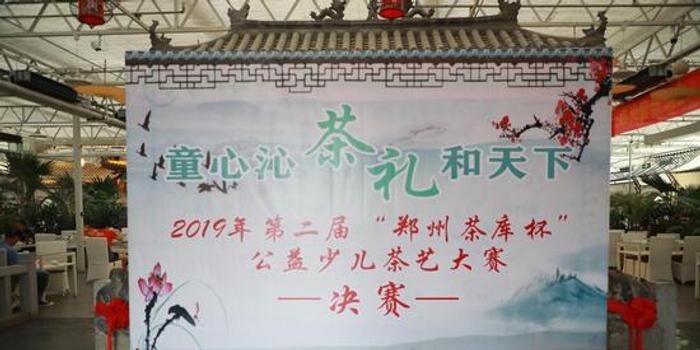 童心沁茶礼和天下
2019年第二届“郑州茶库杯”
公益少儿茶艺大赛
—决赛—